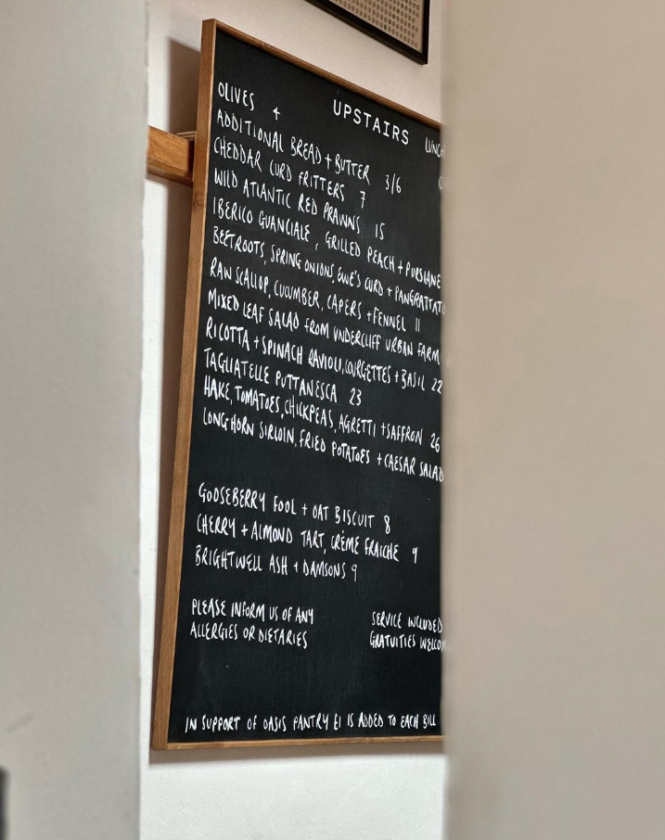 UPSTAIRS
OLIVES 4
ADDITIONAL BREAD + BUTTER 3/6
CHEDDAR CURD FRITTERS 7
WILD ATLANTIC RED PRAWNS 15
IBERICO GUANCIALE, GRILLED PEACH + PURSLANE
BEETROOTS, SPRING ONIONS, EWE'S CURD + PANGRATTATO
RAW SCALLOP, CUCUMBER, CAPERS + FENNEL 11
MIXED LEAF SALAD FROM UNDERCLIFF URBAN FARM
RICOTTA + SPINACH RAVIOLI, COURGETTES + BASIL 22
TAGLIATELLE PUTTANESCA 23
HAKE, TOMATOES, CHICKPEAS, AGRETTI + SAFFRON 26
LONGHORN SIRLOIN, FRIED POTATOES + CAESAR SALAD
GOOSEBERRY FOOL + OAT BISCUIT 8
CHERRY + ALMOND TART, CRÈME FRAICHE 9
BRIGHTWELL ASH + DAMSONS 9
PLEASE INFORM US OF ANY
ALLERGIES OR DIETARIES
SERVICE INCLUDED
GRATUITIES WELCO
IN SUPPORT OF OASIS PANTRY £1 IS ADDED TO EACH BILL